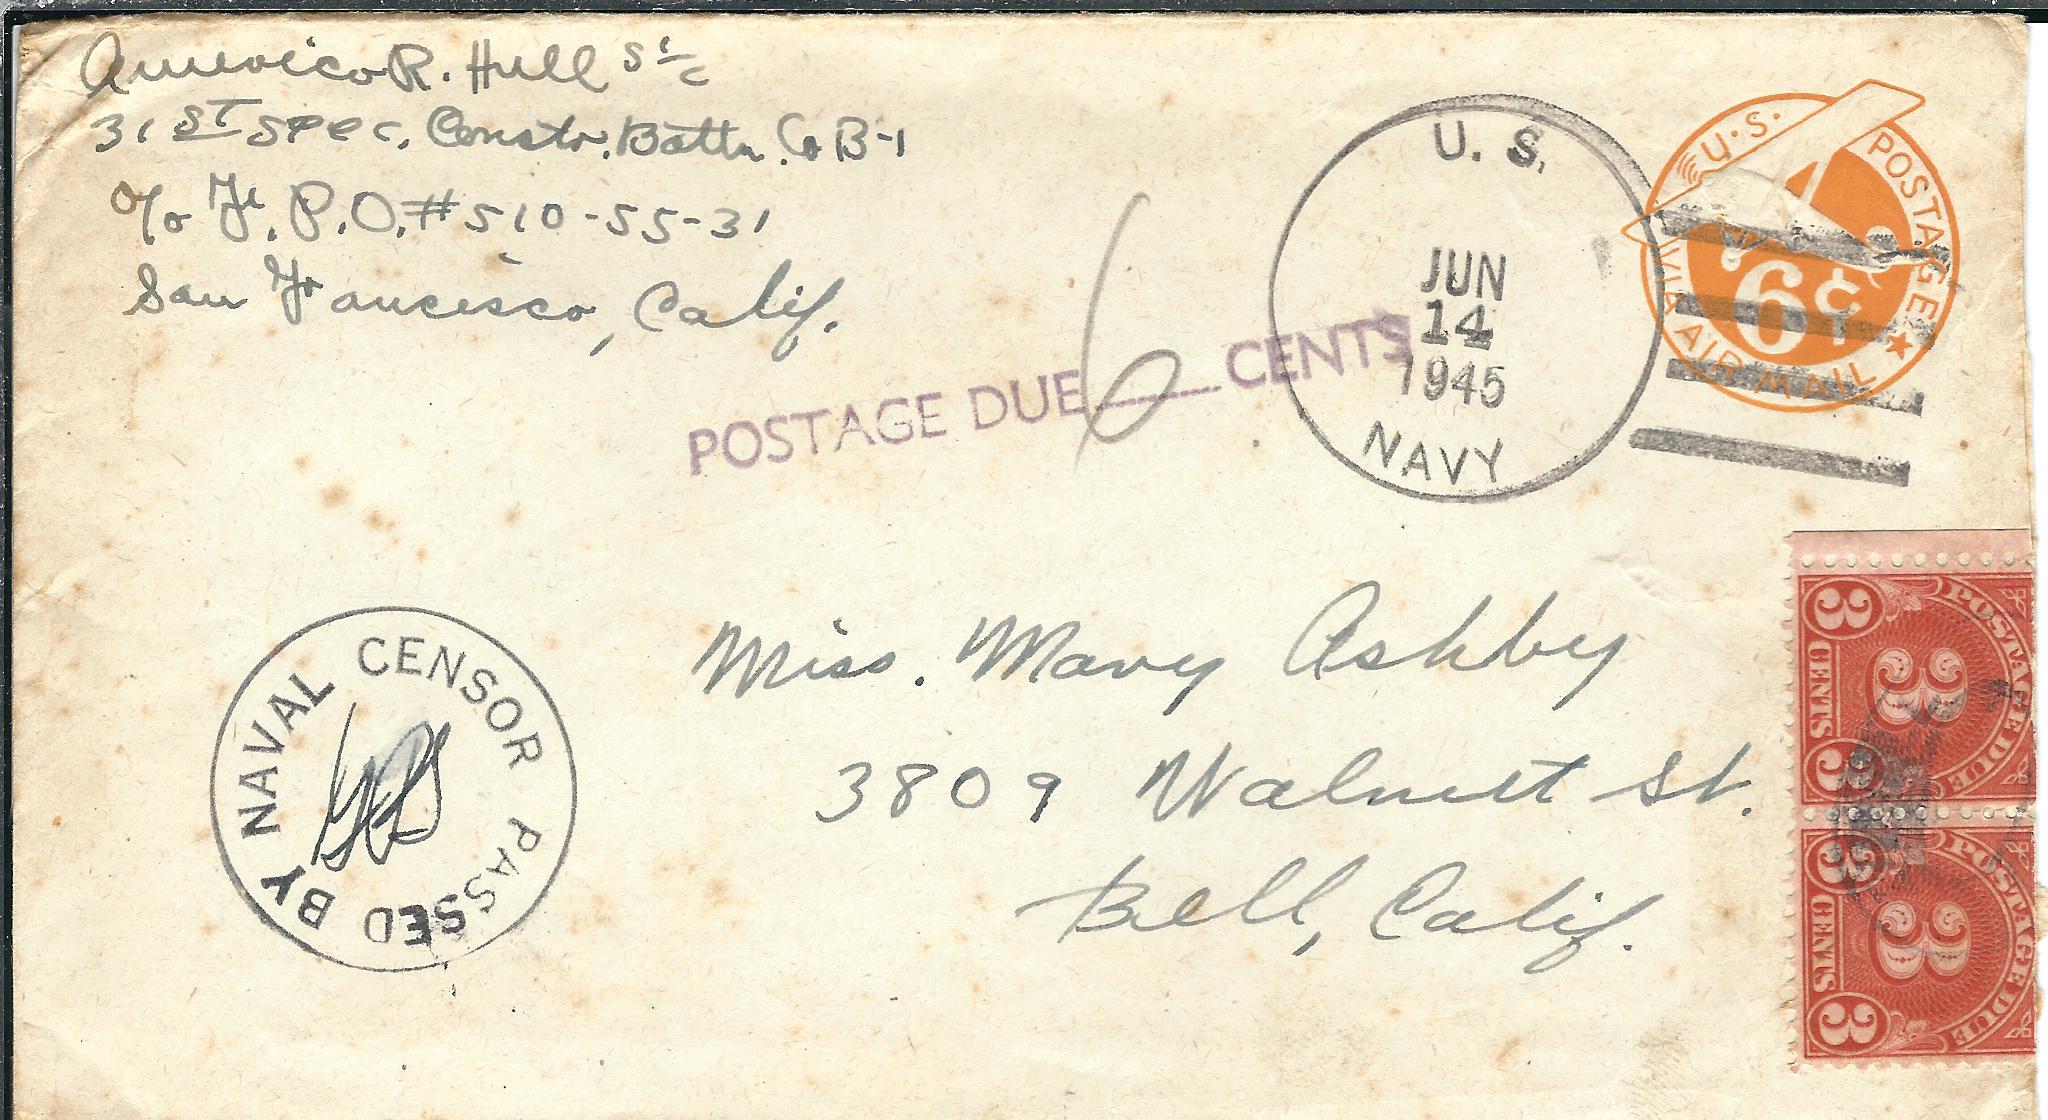 Americo R. Hull S1/c
31ST Spec. Constr. Battn. Co B-1
c/o Fl. P.O. #510-55-31
San Francisco, Calif.
POSTAGE DUE 6 CENTS
U. S.
JUN
14
1945
NAVY
U.S. POSTAGE
6¢
VIA AIR MAIL
PASSED BY NAVAL CENSOR
Miss. Mary Ashby
3809 Walnut St.
Bell, Calif.
3 CENTS 3
POSTAGE DUE
3
3 CENTS 3
POSTAGE DUE
3